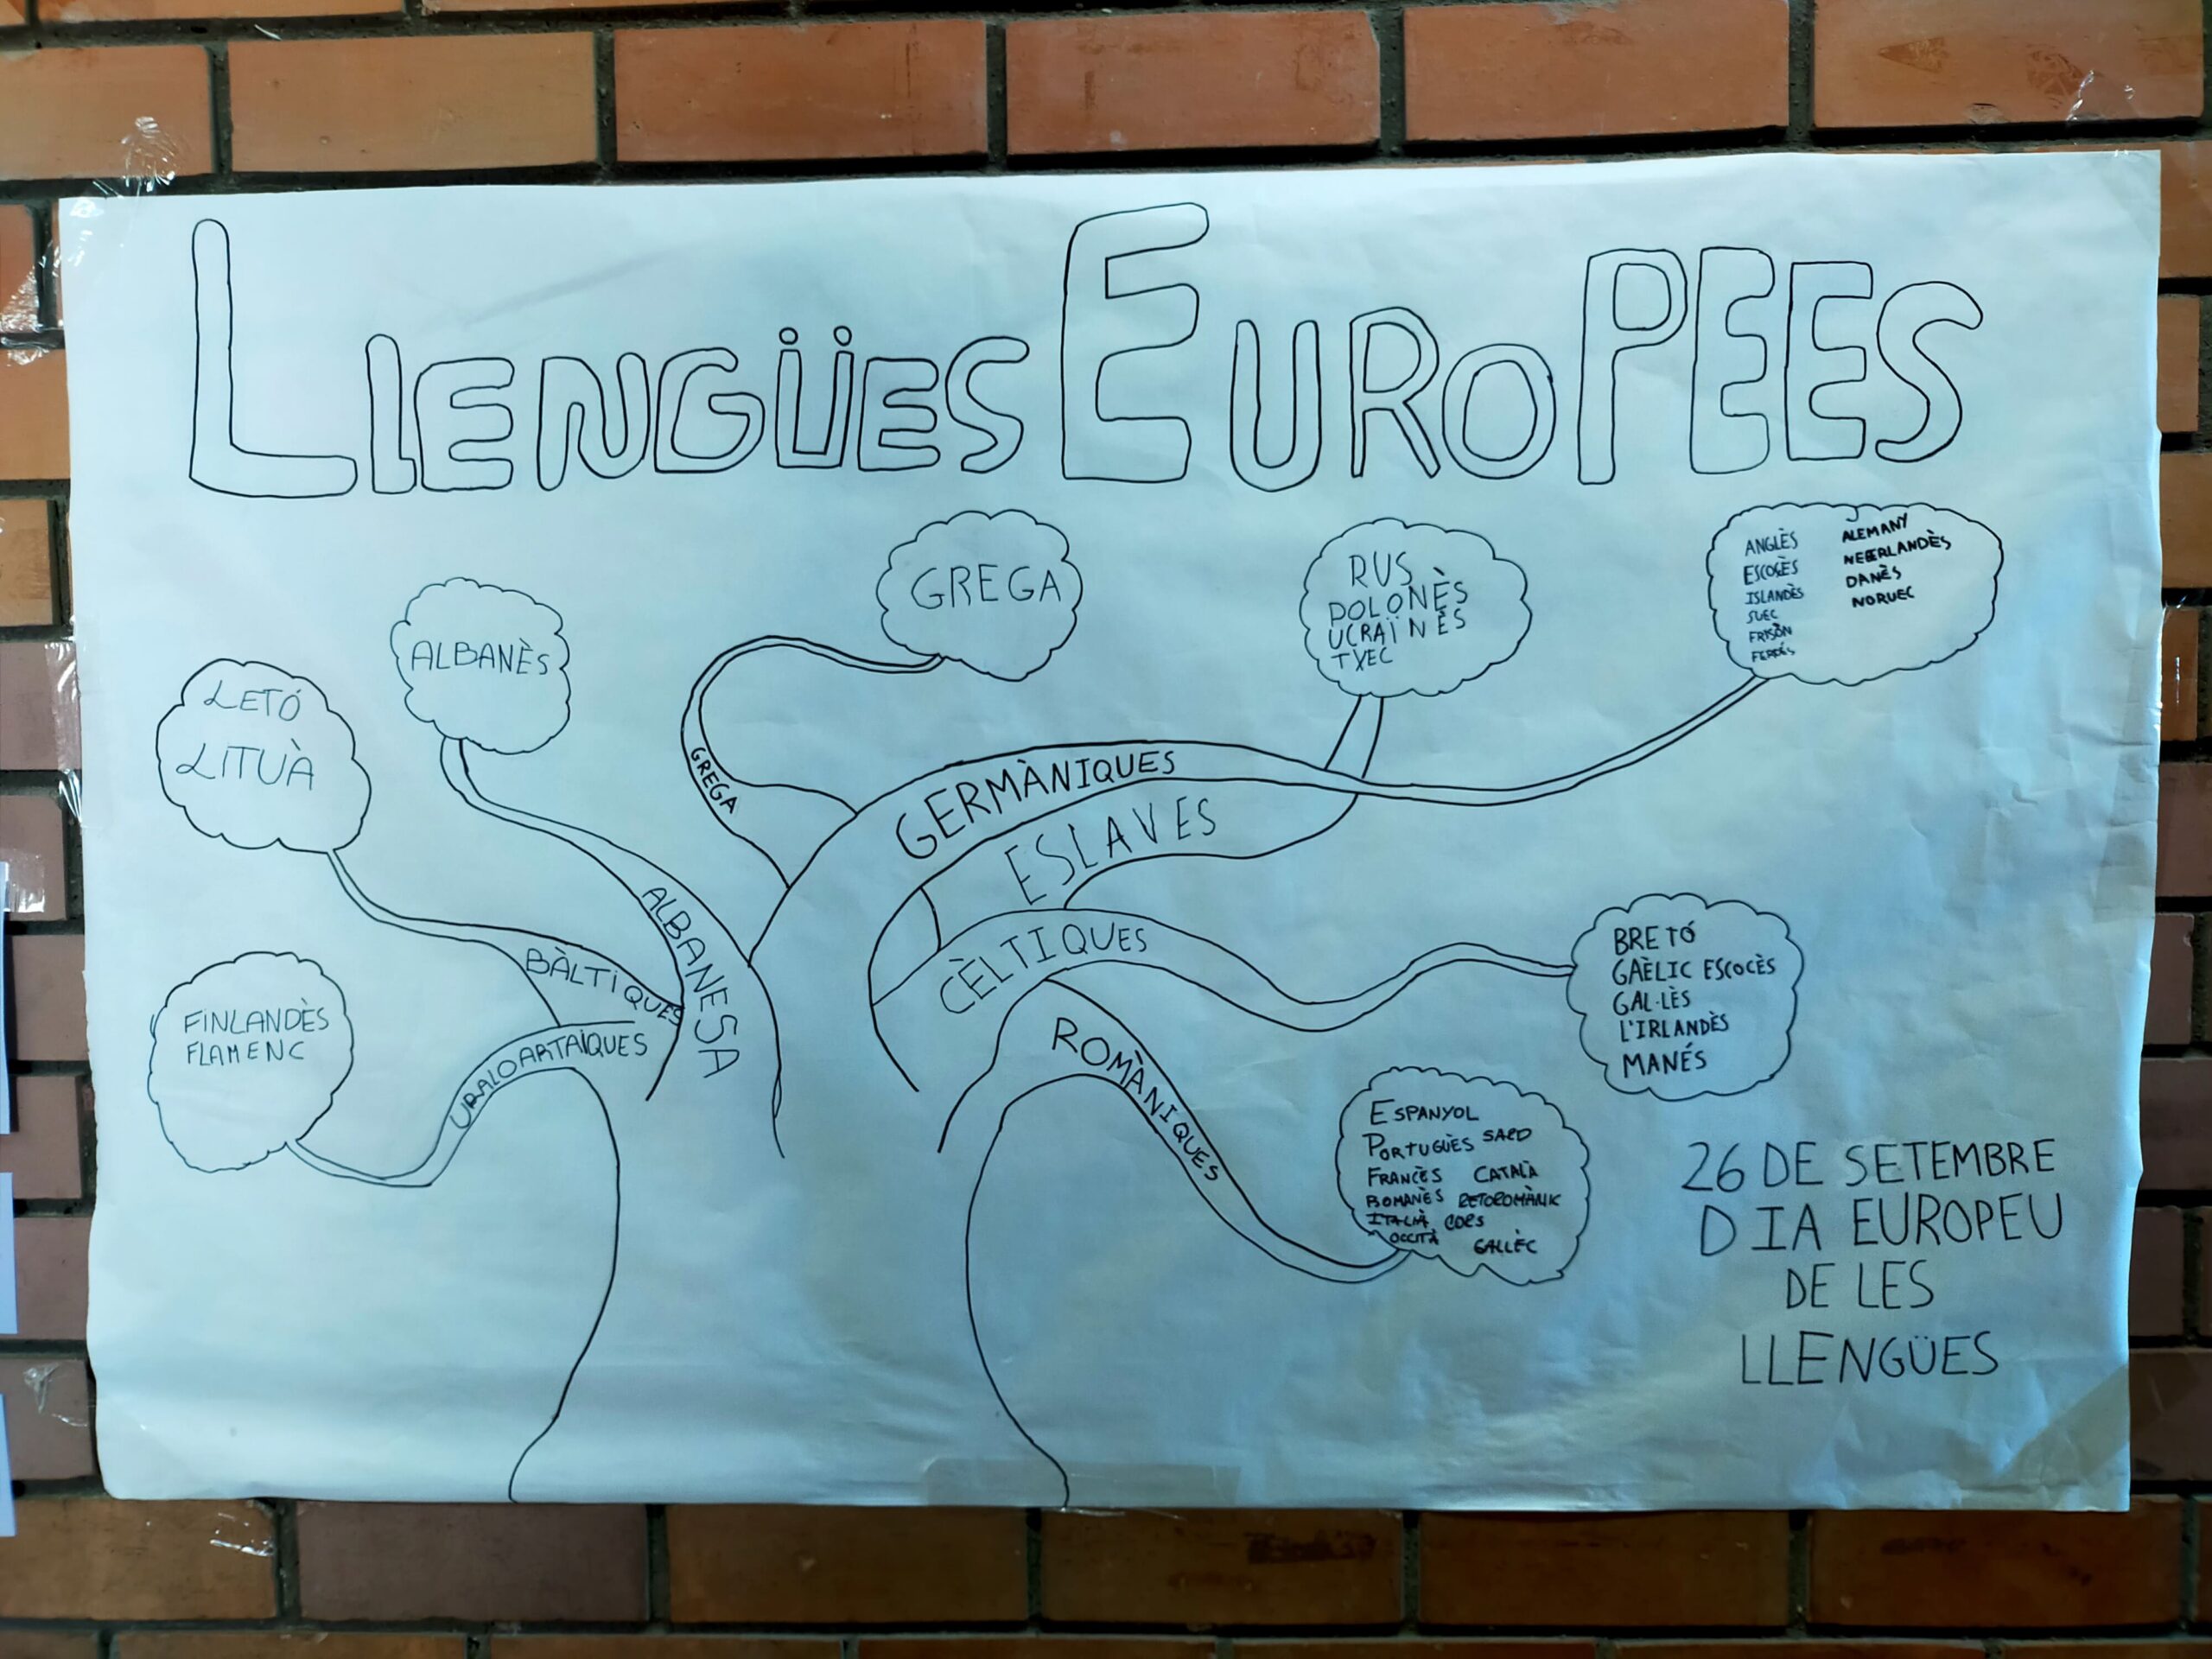 LLENGÜES EUROPEES
GREGA
ALBANÈS
LETÓ
LITUÀ
FINLANDÈS
FLAMENC
RUS
POLONÈS
UCRAÏNÈS
TXEC
ANGLÈS
ESCOCÈS
ISLANDÈS
SUEC
FRISÓN
ALEMANY
NEERLANDÈS
DANÈS
NORUEC
GREGA
GERMÀNIQUES
ESLAVES
CÈLTIQUES
ROMÀNIQUES
ALBANESA
BÀLTIQUES
URALOARTAÏQUES
BRETÓ
GAÈLIC ESCOCÈS
GAL·LÈS
L'IRLANDÈS
MANÉS
ESPANYOL
PORTUGUÈS SARD
FRANCÈS CATALÀ
ROMANÈS RETOROMÀNIC
ITALIÀ CORS
OCCITÀ GALLÈC
26 DE SETEMBRE
DIA EUROPEU
DE LES
LLENGÜES